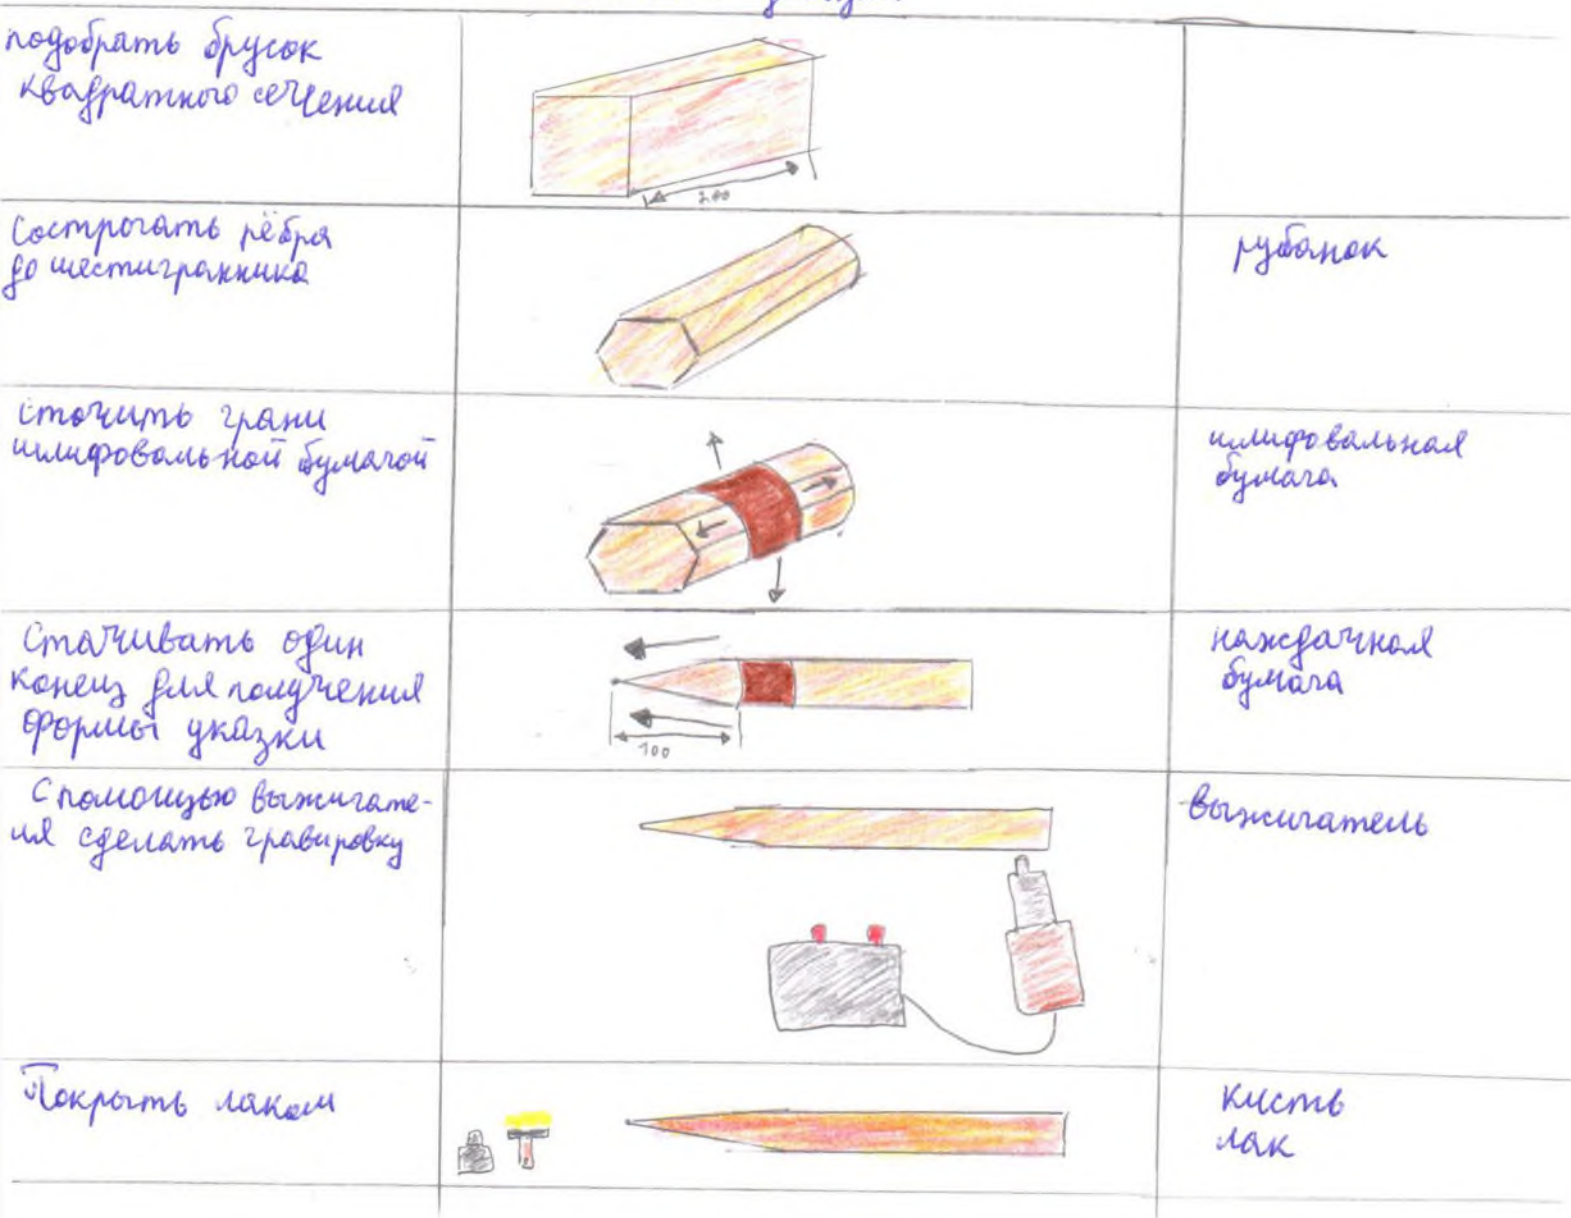 подобрать брусок
квадратного сечения
200
Сострогать рёбра
до шестигранника
рубанок
сточить грани
шлифовальной бумагой
шлифовальная
бумага
Стачивать один
конец для получения
формы указки
100
наждачная
бумага
С помощью выжигате-
ля сделать гравировку
выжигатель
Покрыть лаком
кисть
лак